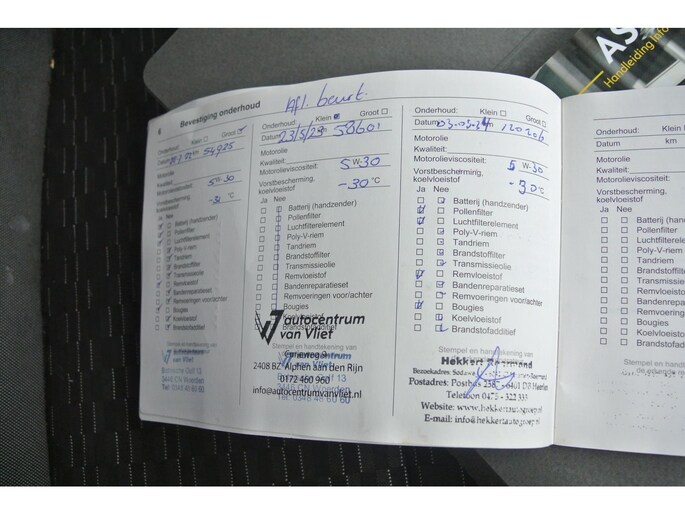 AS
Handleiding Info
6 Bevestiging onderhoud
Afl. beurt.
Onderhoud: Klein Groot
Datum 54925
Motorolie
Kwaliteit:
Motorolieviscositeit: 5W-30
Vorstbescherming,
koelvloeistof -31 °C
Ja Nee
Batterij (handzender)
Pollenfilter
Luchtfilterelement
Poly-V-riem
Tandriem
Brandstoffilter
Transmissieolie
Remvloeistof
Bandenreparatieset
Remvoeringen voor/achter
Bougies
Koelvloeistof
Brandstofadditief
Stempel en handtekening van
autocentrum
van Vliet
3446 CN Woerden
Tel: 0348 48 60 60
Onderhoud: Klein Groot
Datum 23/5/23 58601
Motorolie
Kwaliteit:
Motorolieviscositeit: 5W-30
Vorstbescherming,
koelvloeistof -30 °C
Ja Nee
Batterij (handzender)
Pollenfilter
Luchtfilterelement
Poly-V-riem
Tandriem
Brandstoffilter
Transmissieolie
Remvloeistof
Bandenreparatieset
Remvoeringen voor/achter
Bougies
Koelvloeistof
Brandstofadditief
autocentrum
van Vliet
Stempel en handtekening van
2408 BZ Alphen aan den Rijn
0172 460 960
info@autocentrumvanvliet.nl
Tel: 0348 48 60 60
Onderhoud: Klein Groot
Datum 120206
Motorolie
Kwaliteit:
Motorolieviscositeit: 5W-30
Vorstbescherming,
koelvloeistof -30 °C
Ja Nee
Batterij (handzender)
Pollenfilter
Luchtfilterelement
Poly-V-riem
Tandriem
Brandstoffilter
Transmissieolie
Remvloeistof
Bandenreparatieset
Remvoeringen voor/achter
Bougies
Koelvloeistof
Brandstofadditief
Stempel en handtekening van
Hekkert
Bezoekadres:
Postadres: Postbus 258, 6401 DB Heerlen
Telefoon 0475 - 322 333
Website: www.hekkertautogroep.nl
E-mail: info@hekkertautogroep.nl
Onderhoud: Klein
Datum km
Motorolie
Kwaliteit:
Motorolieviscositeit:
Vorstbescherming,
koelvloeistof
Ja Nee
Batterij (handzender)
Pollenfilter
Luchtfilterelement
Poly-V-riem
Tandriem
Brandstoffilter
Transmissieolie
Remvloeistof
Bandenreparatieset
Remvoeringen voor/achter
Bougies
Koelvloeistof
Brandstofadditief
Stempel en handtekening